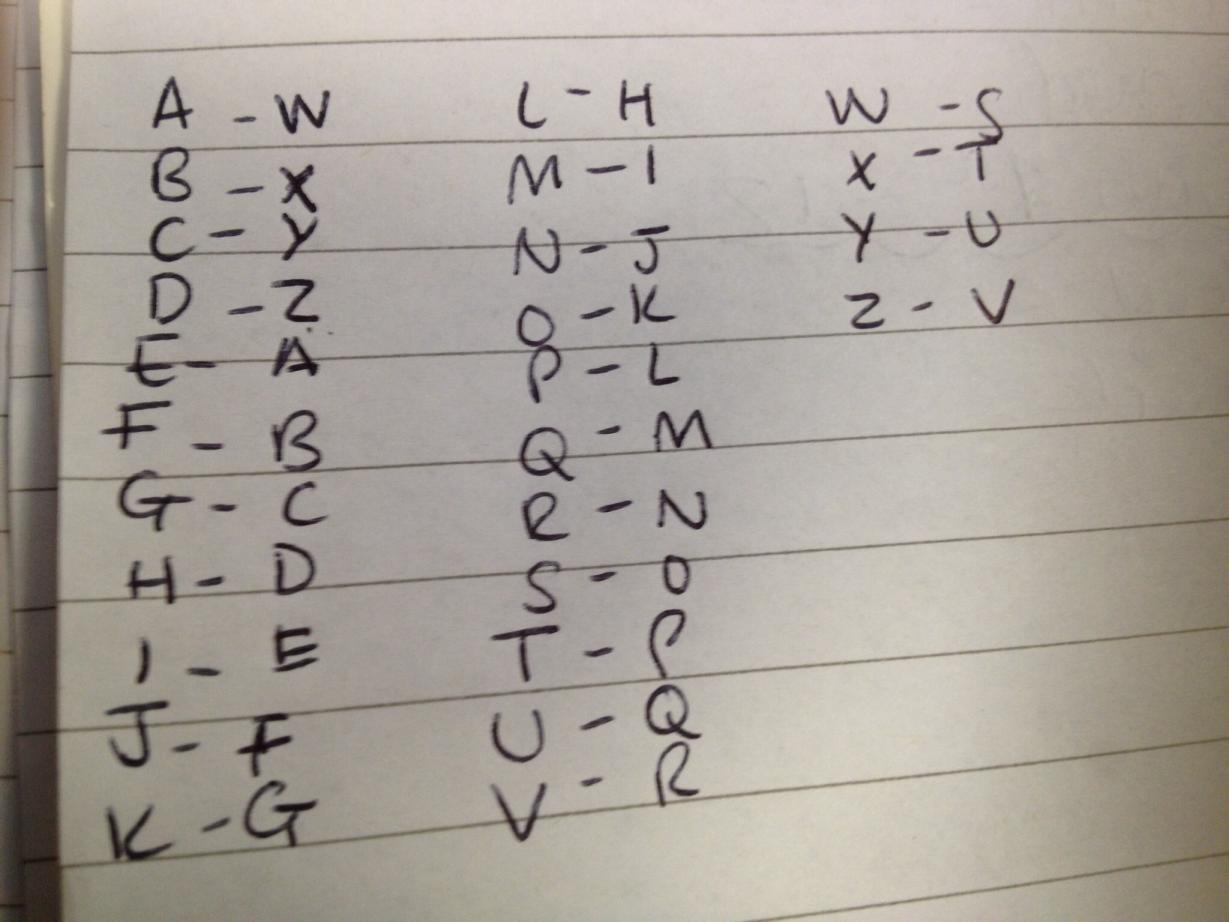 A - W
B - X
C - Y
D - Z
E - A
F - B
G - C
H - D
I - E
J - F
K - G
L - H
M - I
N - J
O - K
P - L
Q - M
R - N
S - O
T - P
U - Q
V - R
W - S
X - T
Y - U
Z - V